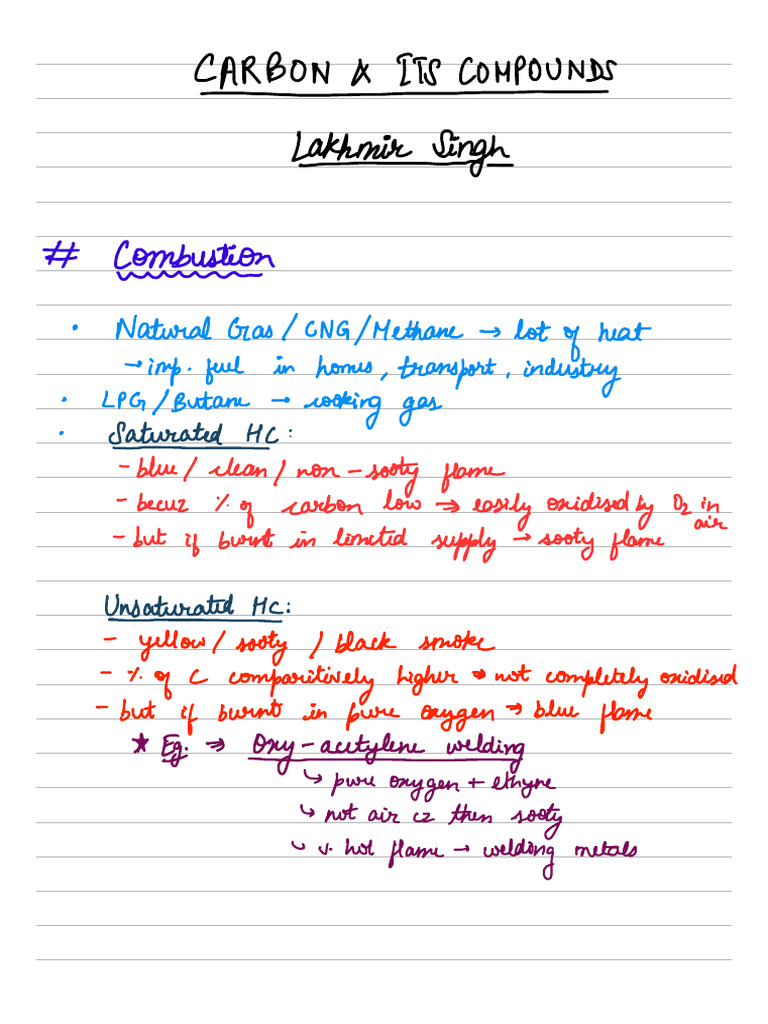 CARBON & ITS COMPOUNDS
Lakhmir Singh
# Combustion
· Natural Gas / CNG / Methane → lot of heat
→ imp. fuel in homes, transport, industry
· LPG / Butane → cooking gas
· Saturated HC:
- blue / clean / non-sooty flame
- becuz % of carbon low → easily oxidised by O2 in air
- but if burnt in limited supply → sooty flame
Unsaturated HC:
- yellow / sooty / black smoke
- % of C comparitively higher → not completely oxidised
- but if burnt in pure oxygen → blue flame
★ Eg. ⇒ Oxy-acetylene welding
↳ pure oxygen + ethyne
↳ not air cz then sooty
↳ v. hot flame → welding metals